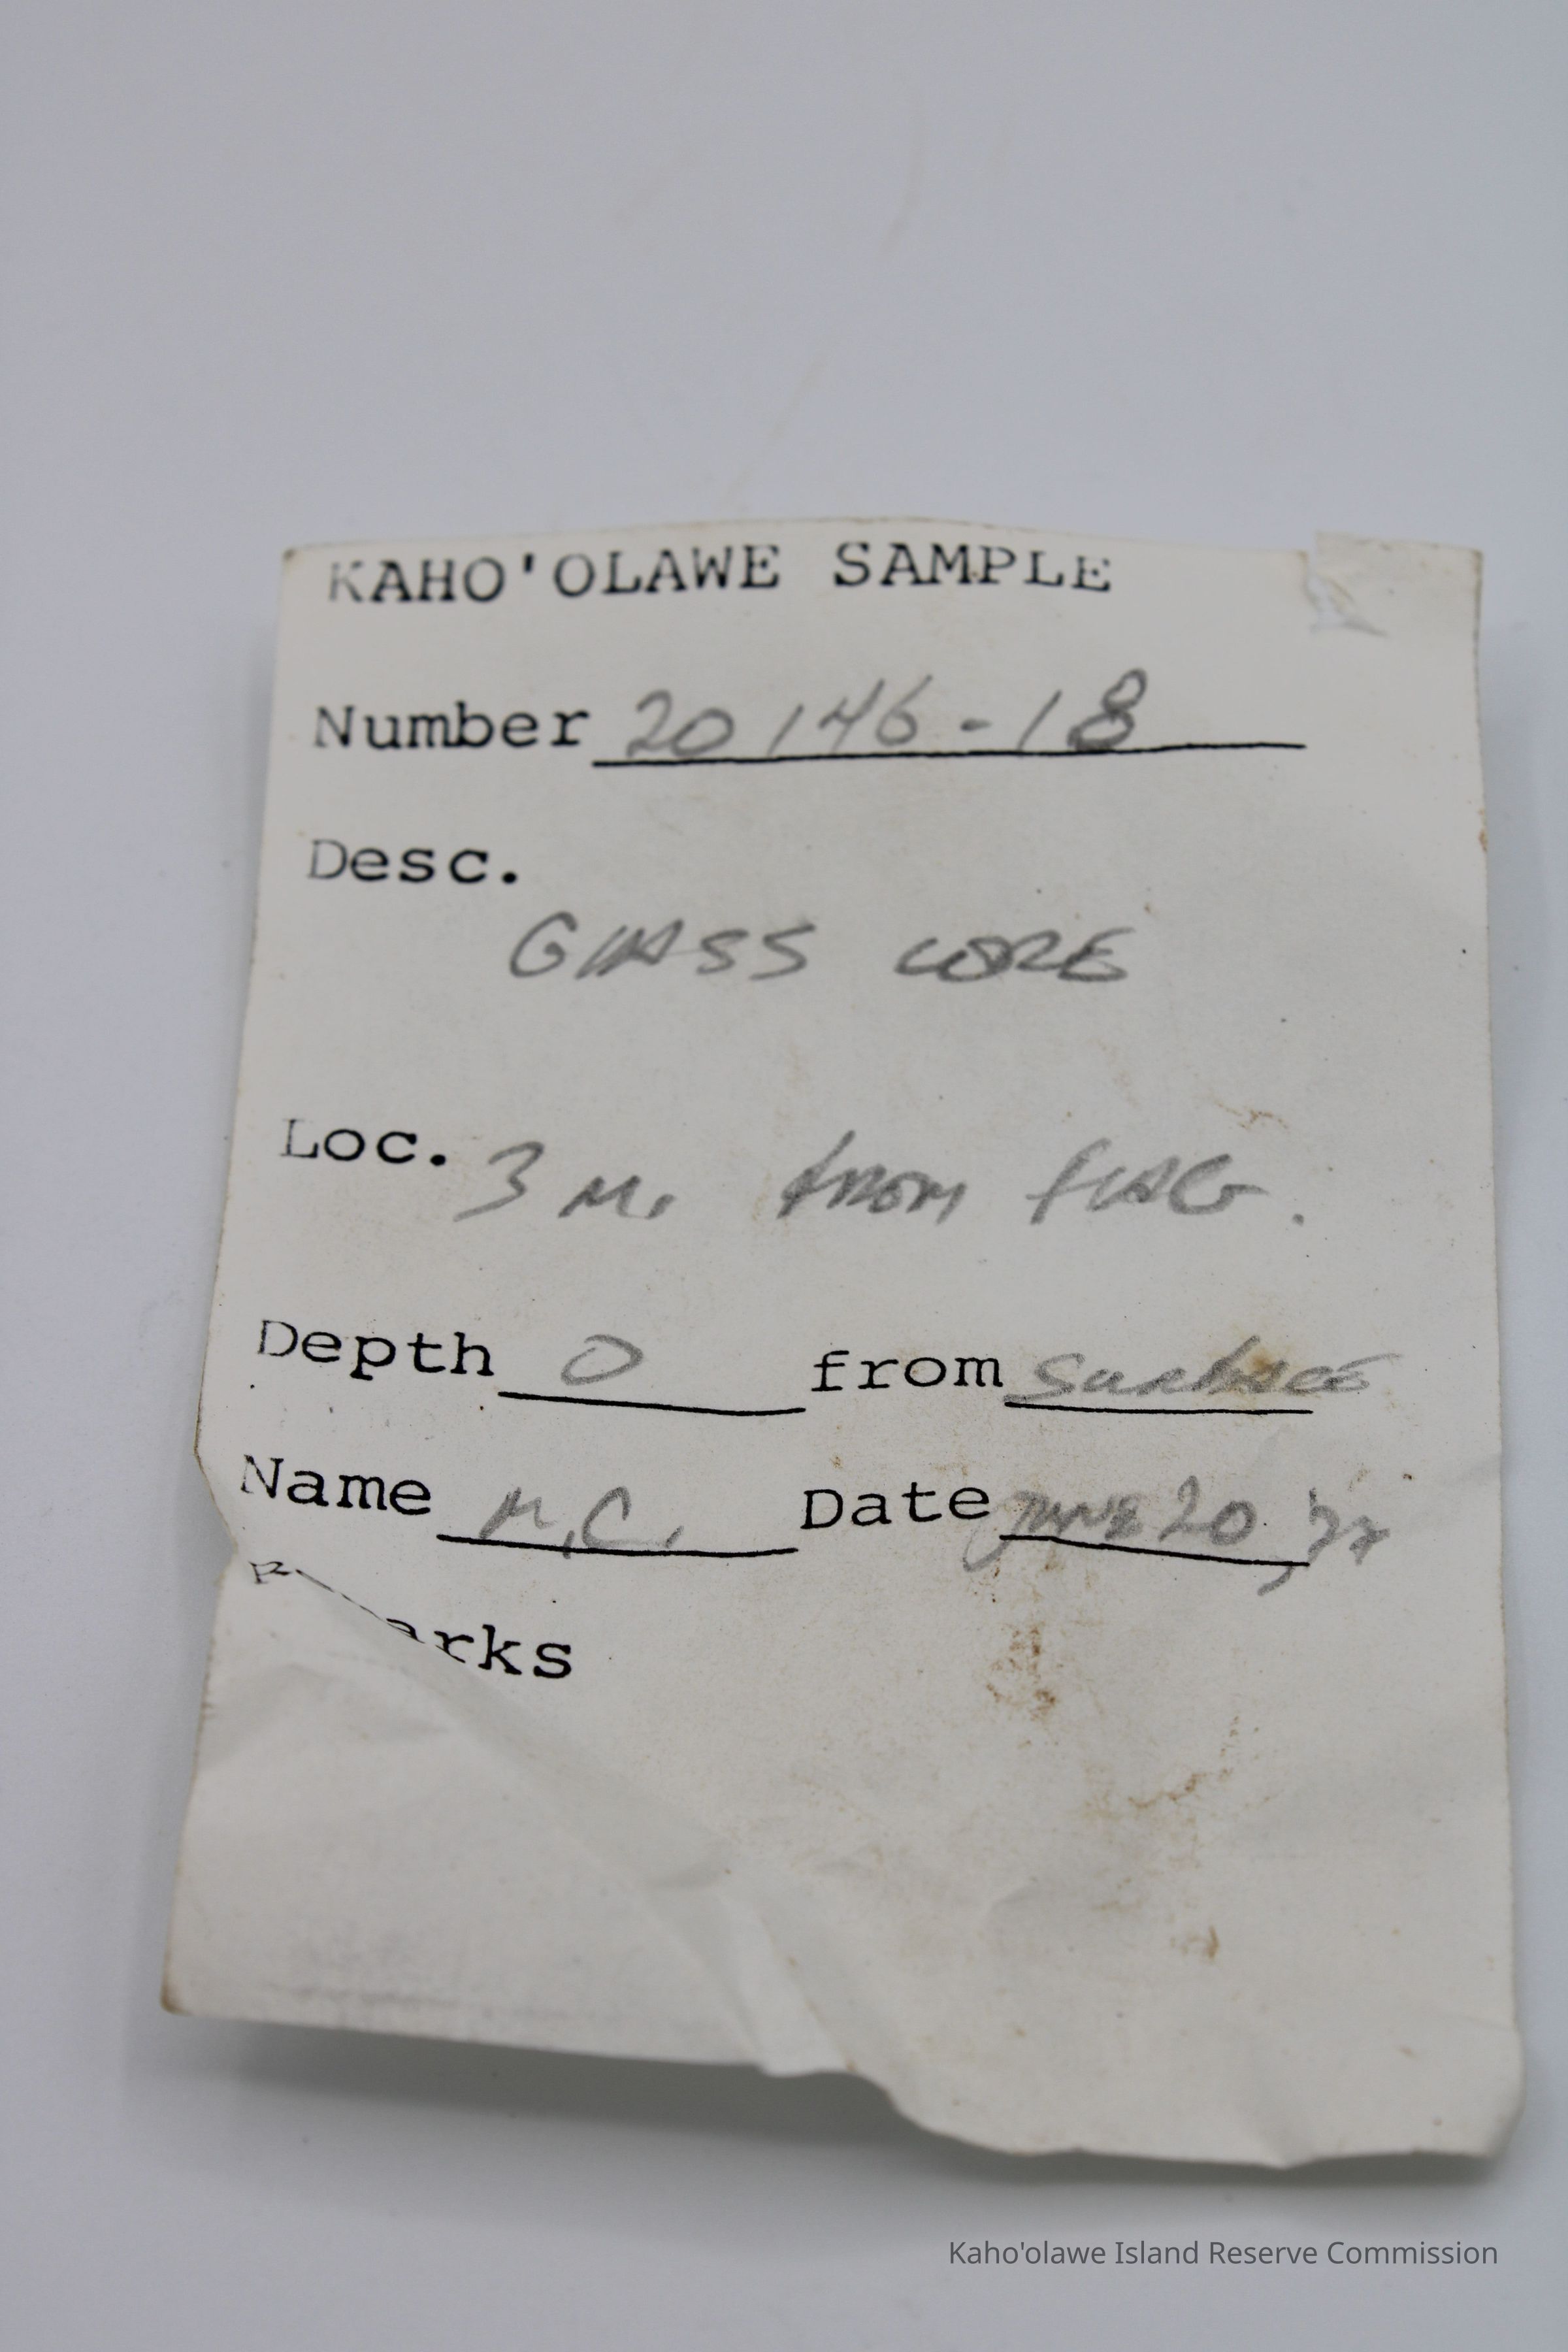 KAHO'OLAWE SAMPLE
Number 20146-18
Desc.
GLASS CORE
Loc. 3 M. from FLAG.
Depth 0 from SURFACE
Name M.C. Date JUNE 20, '77
Remarks
Kaho'olawe Island Reserve Commission